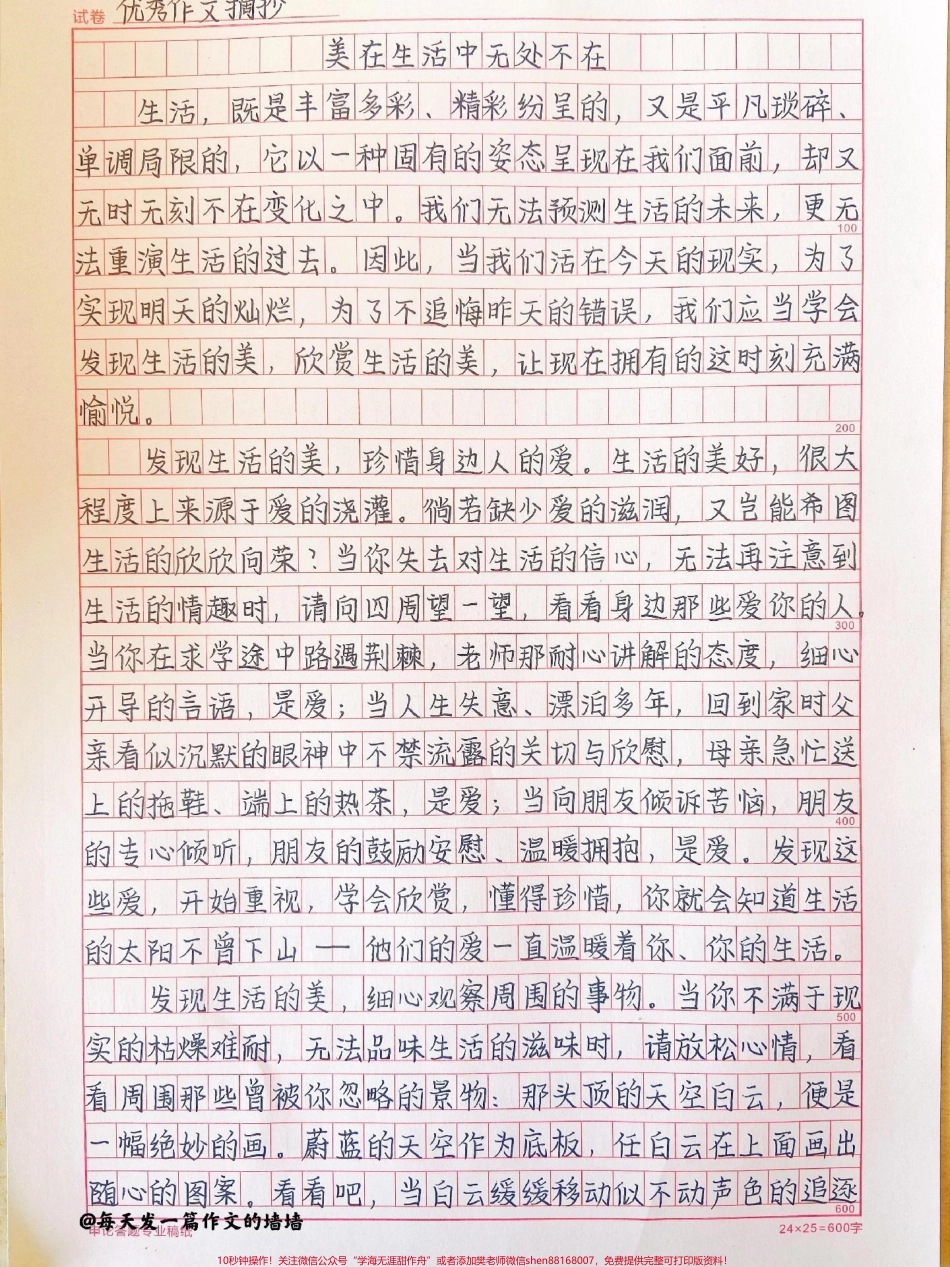 试卷 优秀作文摘抄
美在生活中无处不在
生活，既是丰富多彩、精彩纷呈的，又是平凡琐碎、
单调局限的，它以一种固有的姿态呈现在我们面前，却又
无时无刻不在变化之中。我们无法预测生活的未来，更无
100
法重演生活的过去。因此，当我们活在今天的现实，为了
实现明天的灿烂，为了不追悔昨天的错误，我们应当学会
发现生活的美，欣赏生活的美，让现在拥有的这时刻充满
愉悦。
200
发现生活的美，珍惜身边人的爱。生活的美好，很大
程度上来源于爱的浇灌。倘若缺少爱的滋润，又岂能希图
生活的欣欣向荣？当你失去对生活的信心，无法再注意到
生活的情趣时，请向四周望一望，看看身边那些爱你的人。
300
当你在求学途中路遇荆棘，老师那耐心讲解的态度，细心
开导的言语，是爱；当人生失意、漂泊多年，回到家时父
亲看似沉默的眼神中不禁流露的关切与欣慰，母亲急忙送
上的拖鞋、端上的热茶，是爱；当向朋友倾诉苦恼，朋友
400
的专心倾听，朋友的鼓励安慰、温暖拥抱，是爱。发现这
些爱，开始重视，学会欣赏，懂得珍惜，你就会知道生活
的太阳不曾下山——他们的爱一直温暖着你、你的生活。
发现生活的美，细心观察周围的事物。当你不满于现
500
实的枯燥难耐，无法品味生活的滋味时，请放松心情，看
看周围那些曾被你忽略的景物：那头顶的天空白云，便是
一幅绝妙的画。蔚蓝的天空作为底板，任白云在上面画出
随心的图案。看看吧，当白云缓缓移动似不动声色的追逐
600
@每天发一篇作文的墙墙
申论答题专业稿纸 24×25=600字
10秒钟操作！关注微信公众号“学海无涯甜作舟”或者添加樊老师微信shen88168007，免费提供完整可打印版资料！